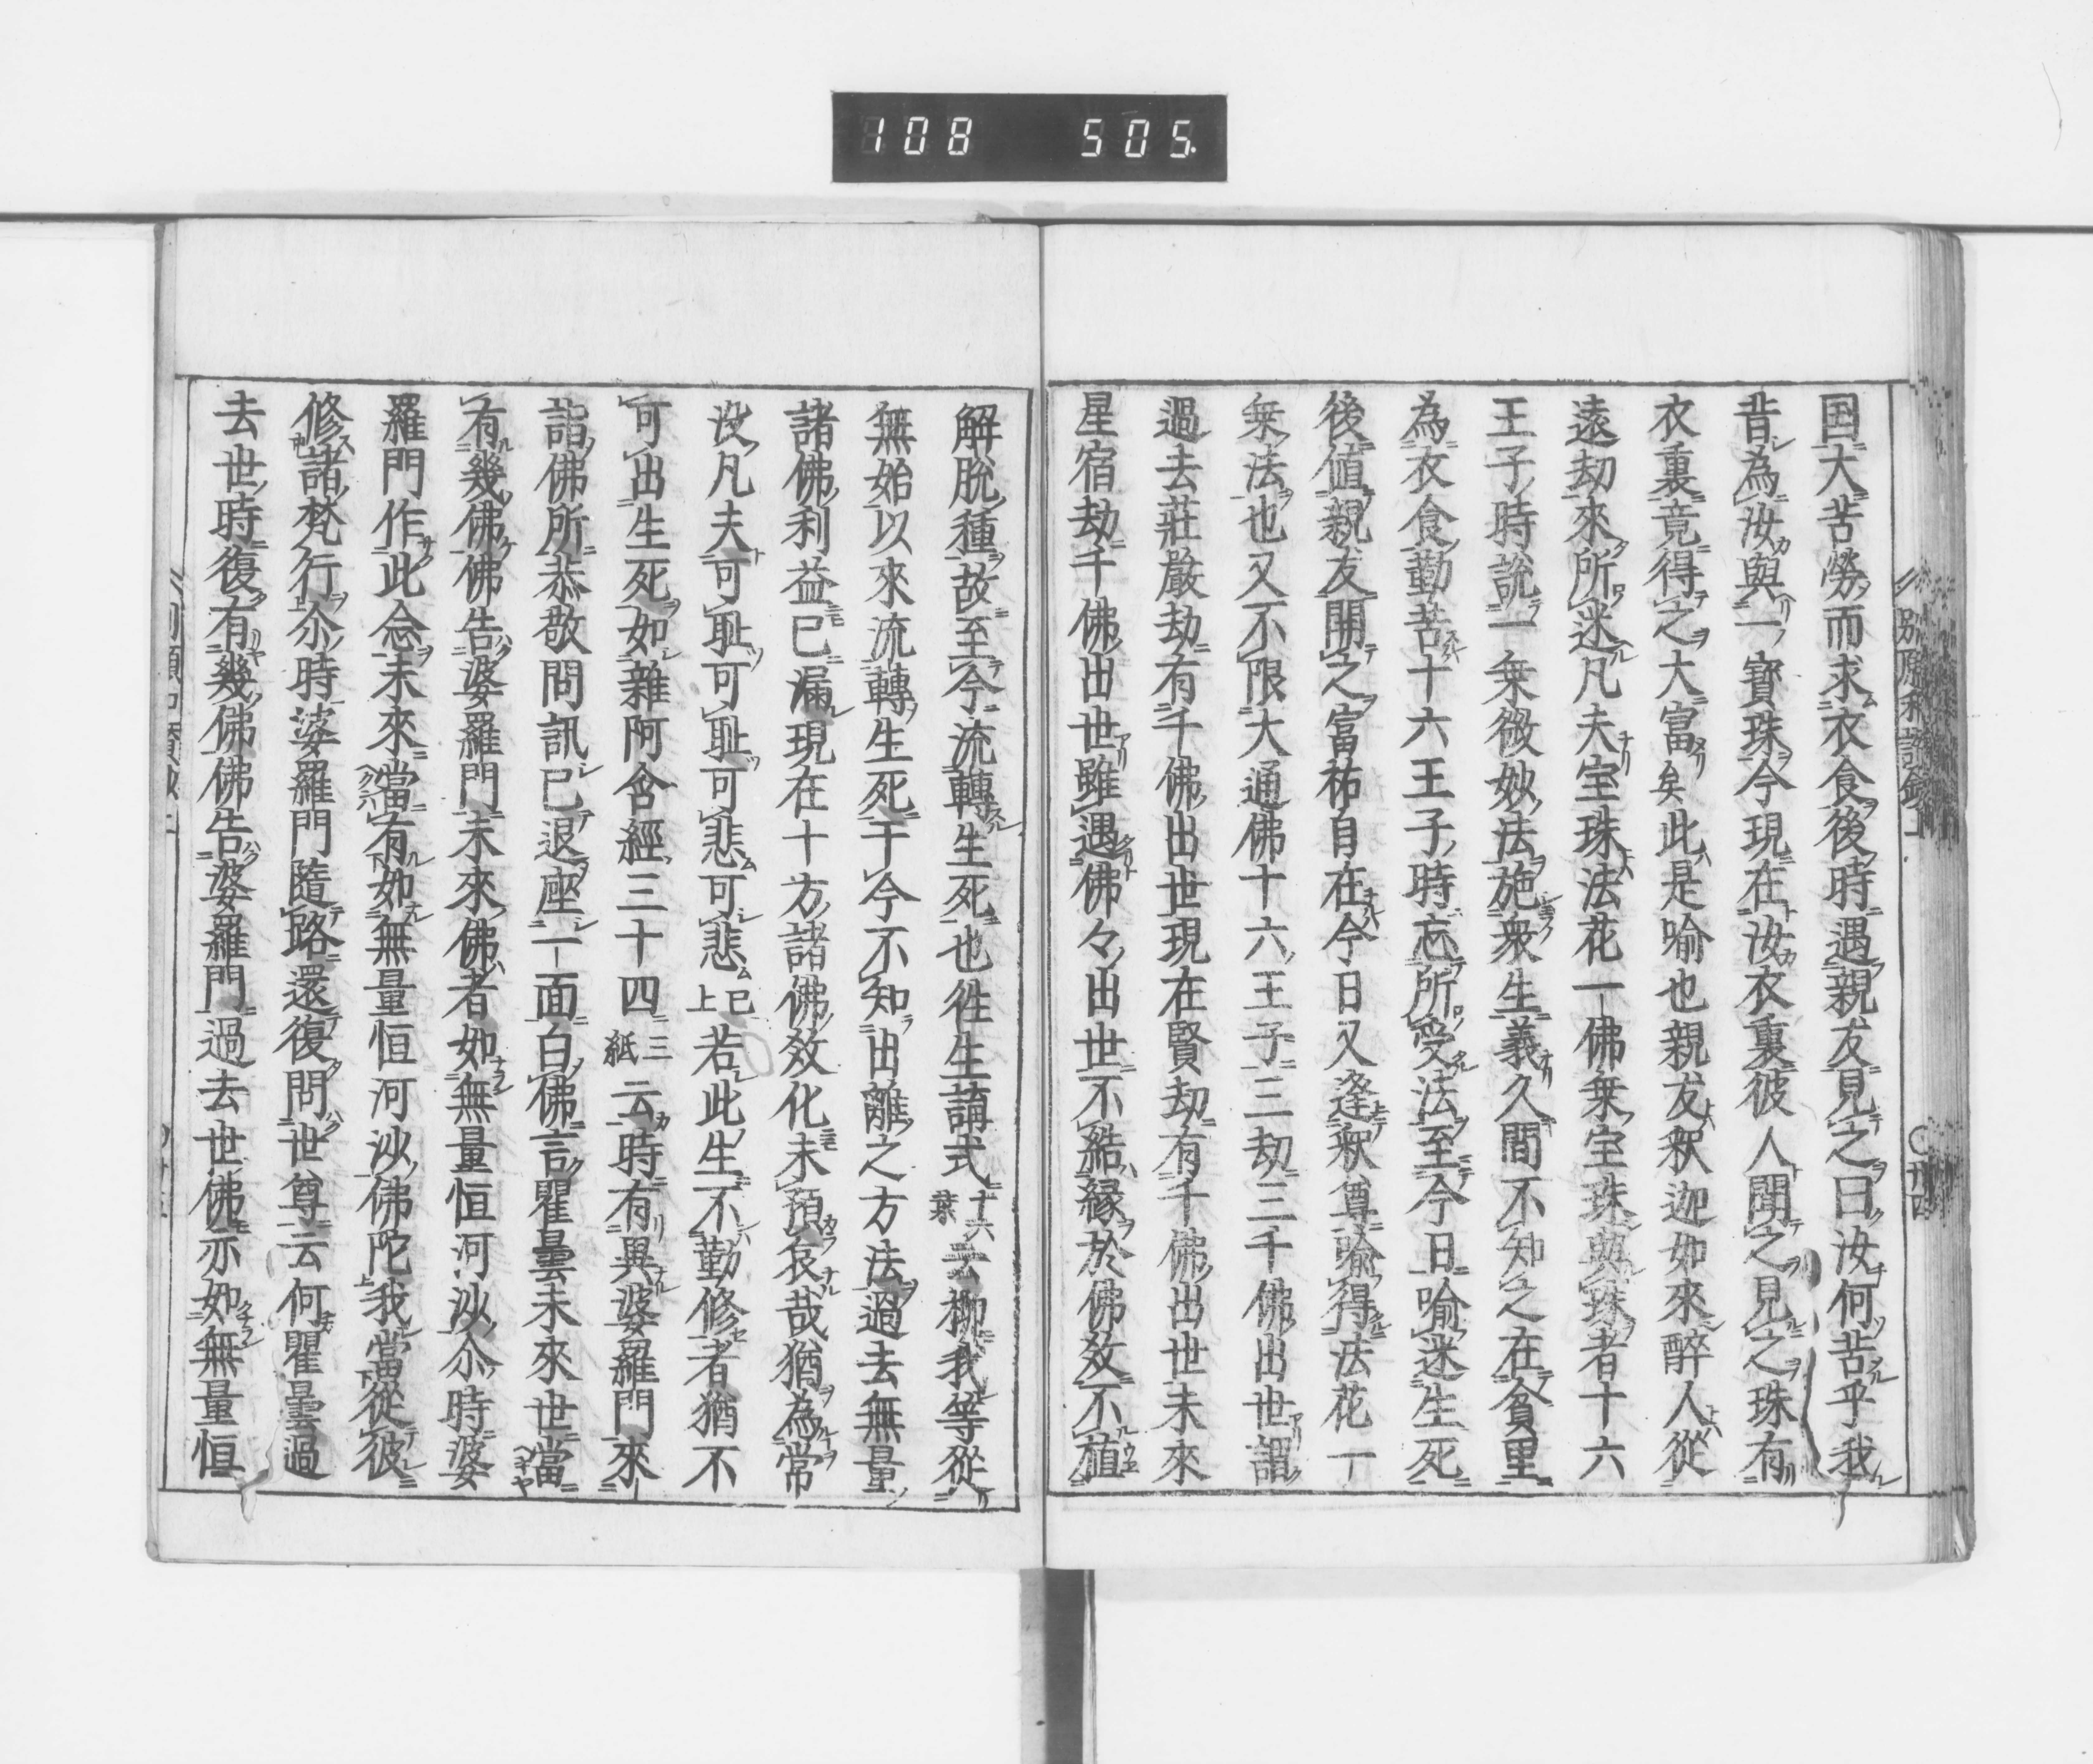 108 505.
国大苦勞而求衣食後時遇親友見之曰汝何苦乎我
昔為汝與一寶珠今現在汝衣裏彼人聞之見之珠有
衣裏竟得之大富矣此是喻也親友釈迦如來醉人從
遠劫來所迷凡夫宝珠法花一佛乗宝珠與珠者十六
王子時說一乗微妙法施衆生義久間不知之在貧里
為衣食勤苦十六王子時忘所受法至今日喻迷生死
後値親友開之富祐自在今日又逢釈尊喻得法花一
乗法也又不限大通佛十六王子三劫三千佛出世謂
過去莊嚴劫有千佛出世現在賢劫有千佛出世未來
星宿劫千佛出世雖遇佛々出世不結縁於佛教不植
解脫種故至今流轉生死也往生講式十六葉云抑我等從
無始以來流轉生死于今不知出離之方法過去無量
諸佛利益已漏現在十方諸佛教化未預哀哉猶為常
没凡夫可耻可耻可悲可悲已上若此生不勤修者猶不
可出生死如雜阿含經三十四三紙云時有異婆羅門來
詣佛所恭敬問訊已退座一面白佛言瞿曇未來世當
有幾佛佛告婆羅門未來佛者如無量恒河沙尒時婆
羅門作此念未來當有如無量恒河沙佛陀我當從彼
修諸梵行尒時婆羅門隨路還復問世尊云何瞿曇過
去世時復有幾佛佛告婆羅門過去世佛亦如無量恒